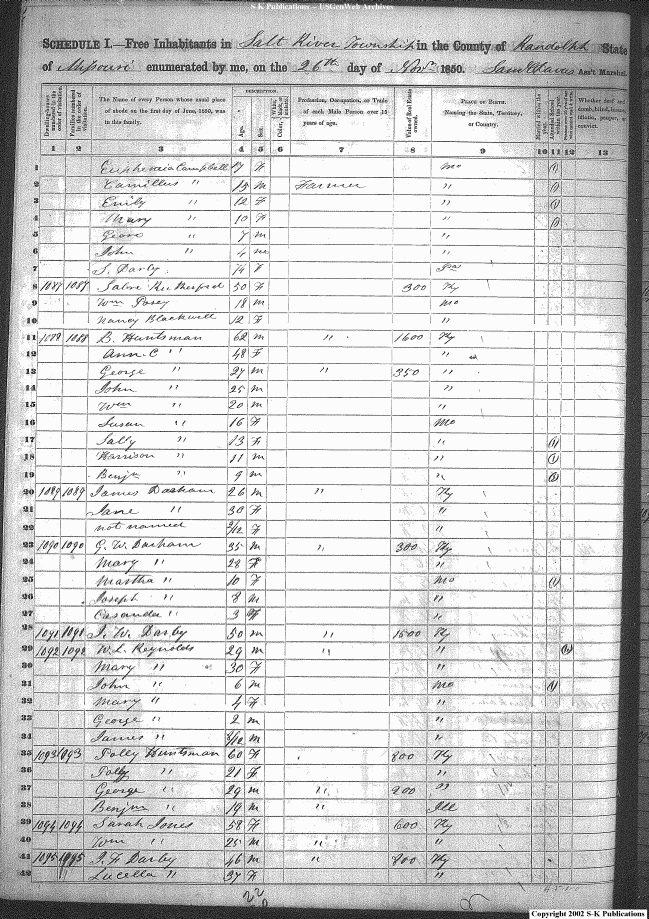 S-K Publications – USGenWeb Archives
SCHEDULE I.—Free Inhabitants in Salt River Township in the County of Randolph State
of Missouri enumerated by me, on the 26th day of Novr 1850. Ass't Marshal.
Dwelling-houses numbered in the order of visitation.
Families numbered in the order of visitation.
The Name of every Person whose usual place of abode on the first day of June, 1850, was in this family.
DESCRIPTION.
Age.
Sex.
Color, White, black, or mulatto.
Profession, Occupation, or Trade of each Male Person over 15 years of age.
Value of Real Estate owned.
PLACE OF BIRTH. Naming the State, Territory, or Country.
Married within the year.
Attended School within the year.
Whether deaf and dumb, blind, insane, idiotic, pauper, or convict.
1 2 3 4 5 6 7 8 9 10 11 12 13
1 Euphemia Campbell 17 F Mo 1
2 Camillus " 15 M Farmer " 1
3 Emily " 12 F " 1
4 Mary " 10 F " 1
5 " 7 M "
6 John " 4 M "
7 S. Darby 74 F
8 1087 1087 Rutherford 50 F 300 Ky
9 Wm Posey 18 M Mo
10 Nancy Blackwell 12 F "
11 1088 1088 B. Huntsman 62 M " 1600 Ky
12 Ann. C " 48 F "
13 George " 27 M " 350 "
14 John " 25 M "
15 Wm " 20 M "
16 Susan " 16 F Mo
17 Sally " 13 F " 1
18 Harrison " 11 M " 1
19 Benjn " 9 M " 1
20 1089 1089 James 26 M " Ky
21 Jane " 30 F "
22 not named 2/12 F "
23 1090 1090 G. W. 35 M " 300 Ky
24 Mary " 28 F "
25 Martha " 10 F Mo 1
26 Joseph " 8 M "
27 Casanda " 3 F "
28 1091 1091 J. W. Darby 50 M " 1500 Ky
29 1092 1092 W. L. Reynolds 29 M " "
30 Mary " 30 F "
31 John " 6 M Mo 1
32 Mary " 4 F "
33 George " 2 M "
34 James " M "
35 1093 1093 Polly Huntsman 60 F 800 Ky
36 Polly " 21 F "
37 George " 29 M " 200 "
38 Benjn " 19 M " Ill
39 1094 1094 Sarah Jones 58 F 600 Ky
40 Wm " 25 M " "
41 1095 1095 J. H Darby 46 M " 800 Ky
42 Lucella " 37 F "
22
Copyright 2002 S-K Publications